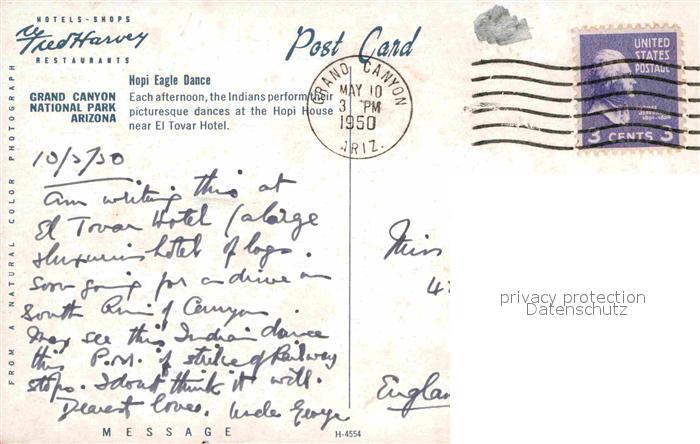 HOTELS - SHOPS
Fred Harvey
RESTAURANTS
Post Card
Hopi Eagle Dance
GRAND CANYON
NATIONAL PARK
ARIZONA
Each afternoon, the Indians perform their
picturesque dances at the Hopi House
near El Tovar Hotel.
GRAND CANYON
MAY 10
3 PM
1950
ARIZ.
UNITED
STATES
POSTAGE
3 CENTS 3
FROM A NATURAL COLOR PHOTOGRAPH
10/5/50
Am writing this at
El Tovar Hotel (a large
& luxurious hotel of logs.
Soon going for a drive on
South Rim of Canyon.
May see this Indian dance
this P.M. if strike of Railway
stops. I dont think it will.
Dearest love. Uncle George
Miss
4
Englan
MESSAGE
H-4554
privacy protection
Datenschutz